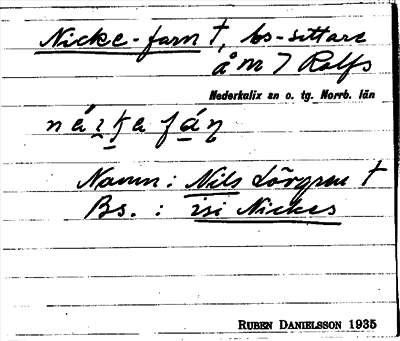 Nicke-farn †, bs-sittare
å m 7 Rolfs
Nederkalix sn o. tg. Norrb. län
Namn : Nils Lövgren †
Bs. : isi Nickes
RUBEN DANIELSSON 1935